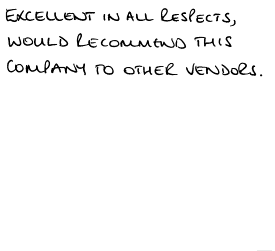 EXCELLENT IN ALL RESPECTS,
WOULD RECOMMEND THIS
COMPANY TO OTHER VENDORS.